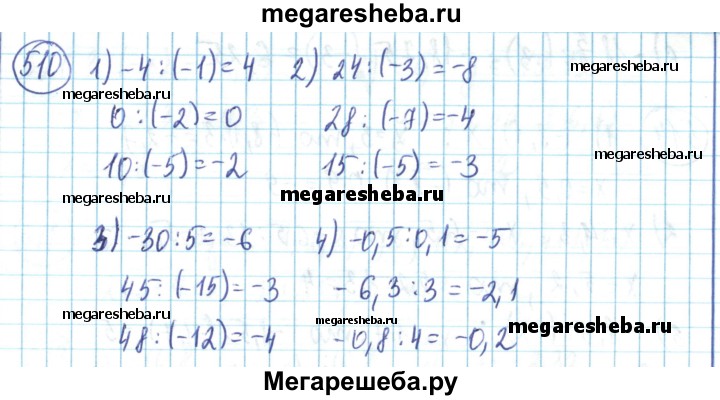 megaresheba.ru
510 1) -4 : (-1) = 4 2) 24 : (-3) = -8
megaresheba.ru megaresheba.ru
0 : (-2) = 0 28 : (-7) = -4
10 : (-5) = -2 15 : (-5) = -3 megaresheba.ru
megaresheba.ru megaresheba.ru
3) -30 : 5 = -6 4) -0,5 : 0,1 = -5
45 : (-15) = -3 -6,3 : 3 = -2,1
megaresheba.ru megaresheba.ru megaresheba.ru
48 : (-12) = -4 -0,8 : 4 = -0,2
Мегарешеба.ру